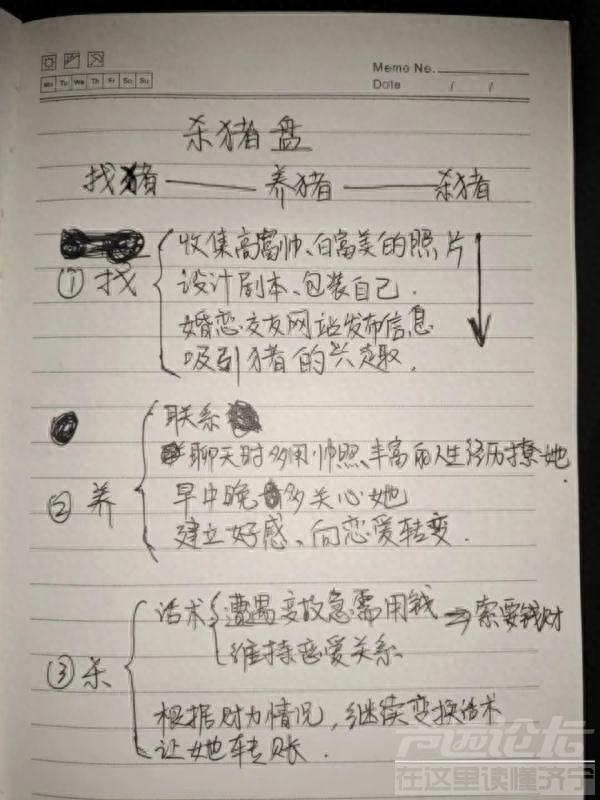 Memo No.
Mo Tu We Th Fr Sa Su
Date / /
杀猪盘
找猪 —— 养猪 —— 杀猪
① 找
收集高富帅、白富美的照片
设计剧本、包装自己.
婚恋交友网站发布信息
吸引猪的兴趣.
② 养
联系
聊天时多用帅照、丰富的人生经历撩她.
早中晚多关心她
建立好感、向恋爱转变.
③ 杀
话术
遭遇变故急需用钱 → 索要钱财
维持恋爱关系
根据财力情况,继续变换话术
让她转账.
在这里读懂济宁